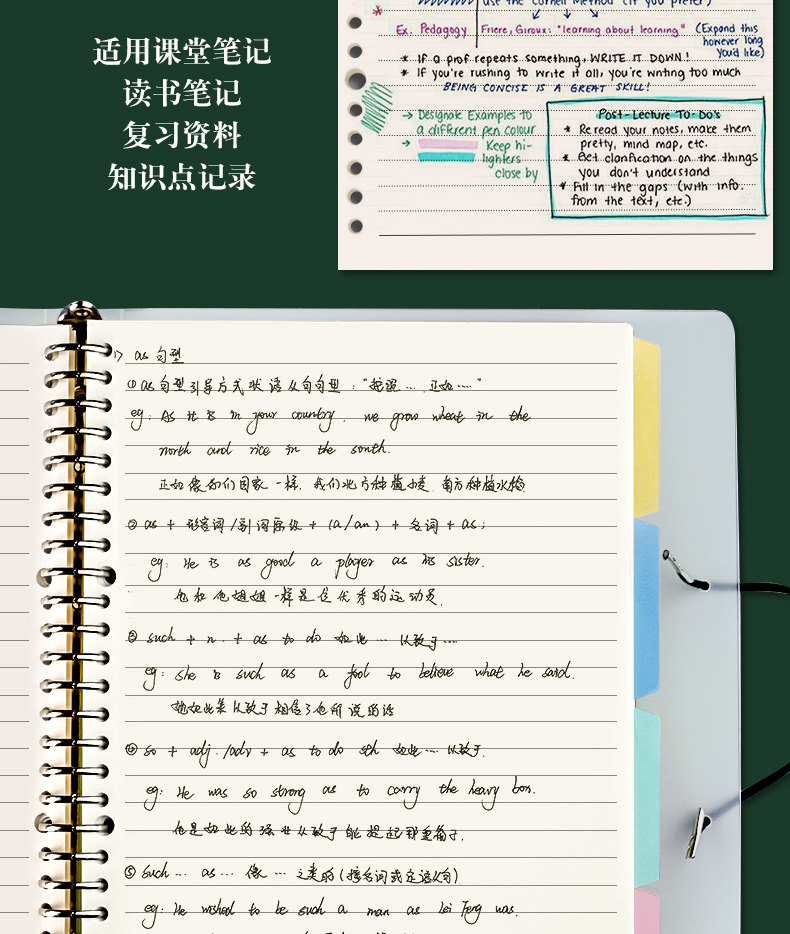 适用课堂笔记
读书笔记
复习资料
知识点记录
use the Cornell Method (if you prefer)
Ex. Pedagogy
Friere, Giroux: "learning about learning"
(Expand this
however long
you'd like)
* If a prof repeats something, WRITE IT DOWN!
* If you're rushing to write it all, you're writing too much
BEING CONCISE IS A GREAT SKILL!
→ Designate Examples to
a different pen colour
→ Keep hi-
lighters
close by
Post-Lecture To-Do's
* Reread your notes, make them
pretty, mind map, etc.
* Get clarification on the things
you don't understand
* Fill in the gaps (with info.
from the text, etc.)
1) as 句型
① as句型引导方式状语从句句型："按照… 正如…"
eg: As it is in your country, we grow wheat in the
north and rice in the south.
正如像你们国家一样，我们北方种植小麦，南方种植水稻.
② as + 形容词/副词原级 + (a/an) + 名词 + as;
eg: He is as good a player as his sister.
他和他姐姐一样是位优秀的运动员.
③ such + n. + as to do 如此… 以致于…
eg: She is such as a fool to believe what he said.
她如此笨以致于相信了他所说的话
④ so + adj./adv + as to do sth 如此… 以致于.
eg: He was so strong as to carry the heavy box.
他是如此的强壮以致于能提起那重箱子.
⑤ Such … as … 像 … 之类的 (接名词或定语从句)
eg: He wished to be such a man as Lei Feng was.